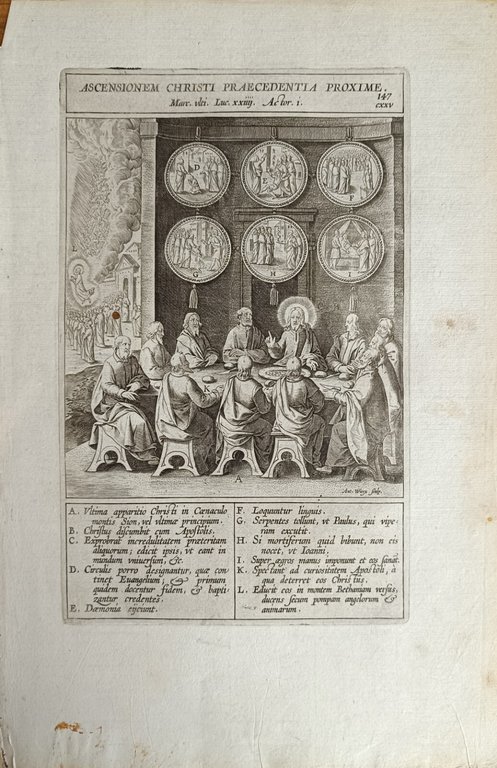 ASCENSIONEM CHRISTI PRAECEDENTIA PROXIME.
Marc. ulti. Luc. xxiiij. Actor. i.
147
cxxv
D
E
F
G
H
I
L
A
Ant. Wierx sculp.
A. Vltima apparitio Christi in Cœnaculo
montis Sion, vel vltimæ principium.
B. Christus discumbit cum Apostolis.
C. Exprobrat incredulitatem præteritam
aliquorum; edicit ipsis, vt eant in
mundum vniuersum, &c.
D. Circulis porro designantur, quæ con
tinet Euangelium; & primum
quidem docentur fidem, & bapti
zantur credentes.
E. Dæmonia eijcunt.
F. Loquuntur linguis.
G. Serpentes tollunt, vt Paulus, qui vipe
ram excutit.
H. Si mortiferum quid bibunt, non eis
nocet, vt Ioanni.
I. Super ægros manus imponunt et eos sanāt.
K. Spectant ad curiositatem Apostoli, à
qua deterret eos Christus.
L. Educit eos in montem Bethaniam versus,
ducens secum pompam angelorum &
animarum.